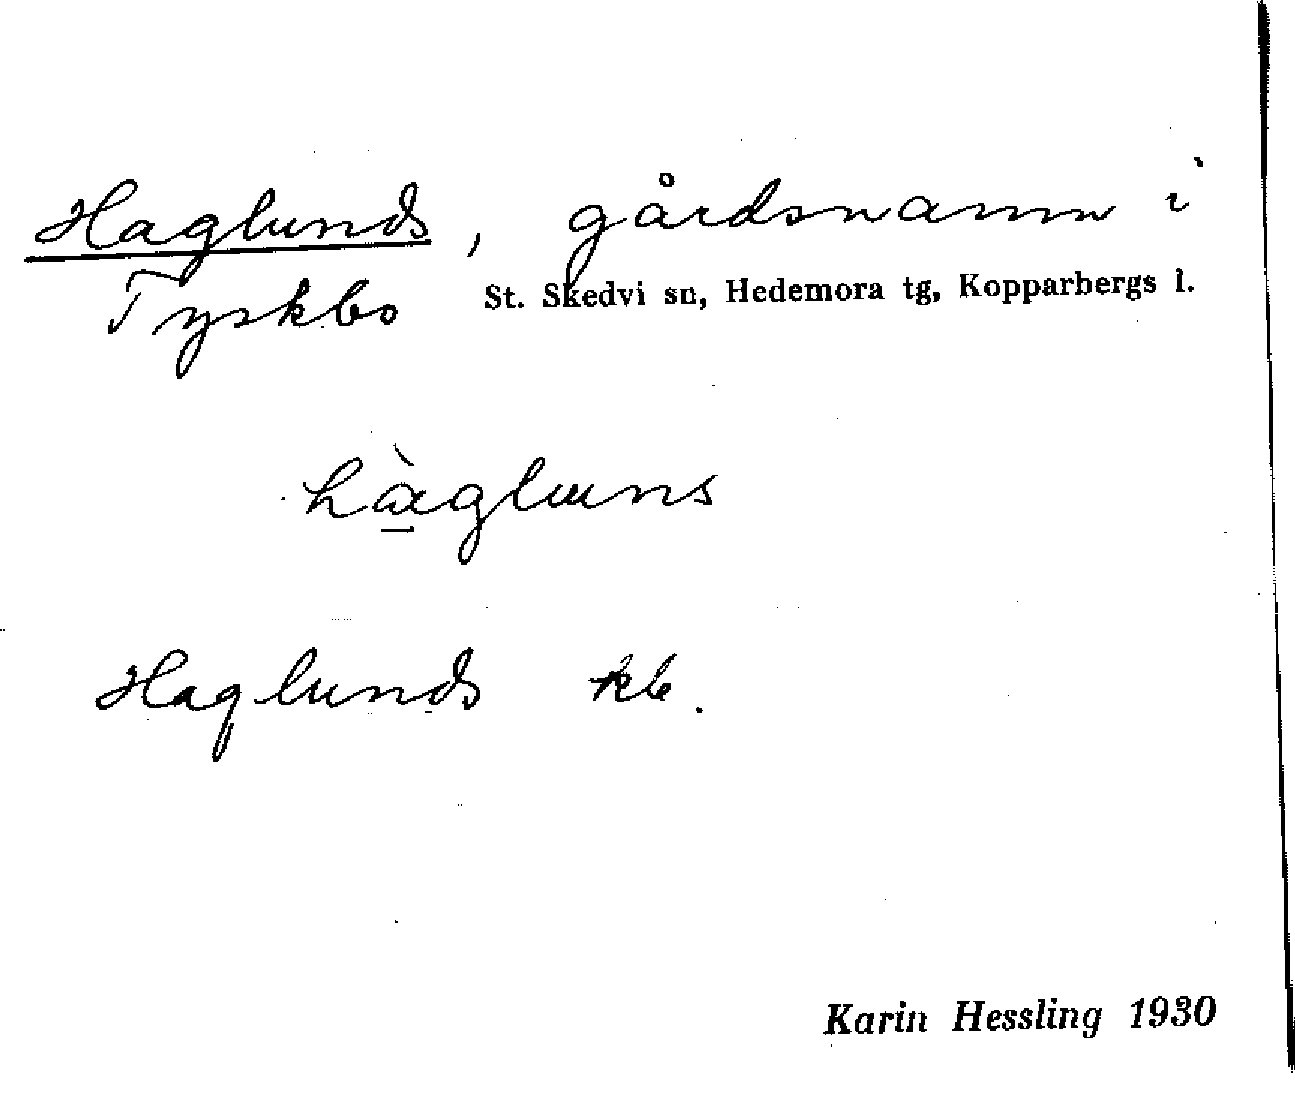 Haglunds, gårdsnamn i
Tyskbo St. Skedvi sn, Hedemora tg, Kopparbergs l.
hàgluns
Haglunds kb.
Karin Hessling 1930